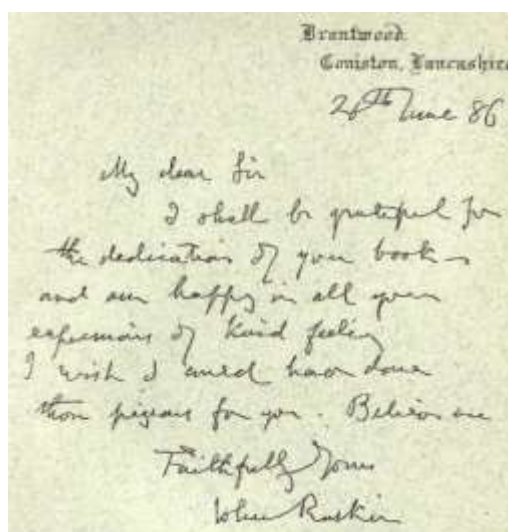 Brantwood.
Coniston, Lancashire
My dear Sir
I shall be grateful for
the dedication of your book –
and am happy in all your
expressions of kind feeling
I wish I could have done
pigeons for you. Believe me
Faithfully Yours
John Ruskin